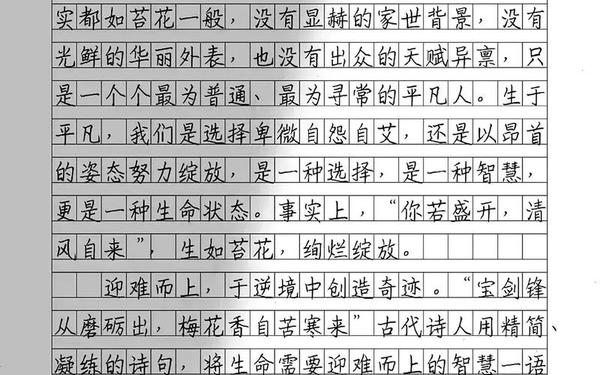 实都如苔花一般，没有显赫的家世背景，没有
光鲜的华丽外表，也没有出众的天赋异禀，只
是一个个最为普通、最为寻常的平凡人。生于
平凡，我们是选择卑微自怨自艾，还是以昂首
的姿态努力绽放，是一种选择，是一种智慧，
更是一种生命状态。事实上，“你若盛开，清
风自来”，生如苔花，绚烂绽放。
迎难而上，于逆境中创造奇迹。“宝剑锋
从磨砺出，梅花香自苦寒来”古代诗人用精简、
凝练的诗句，将生命需要迎难而上的智慧一语